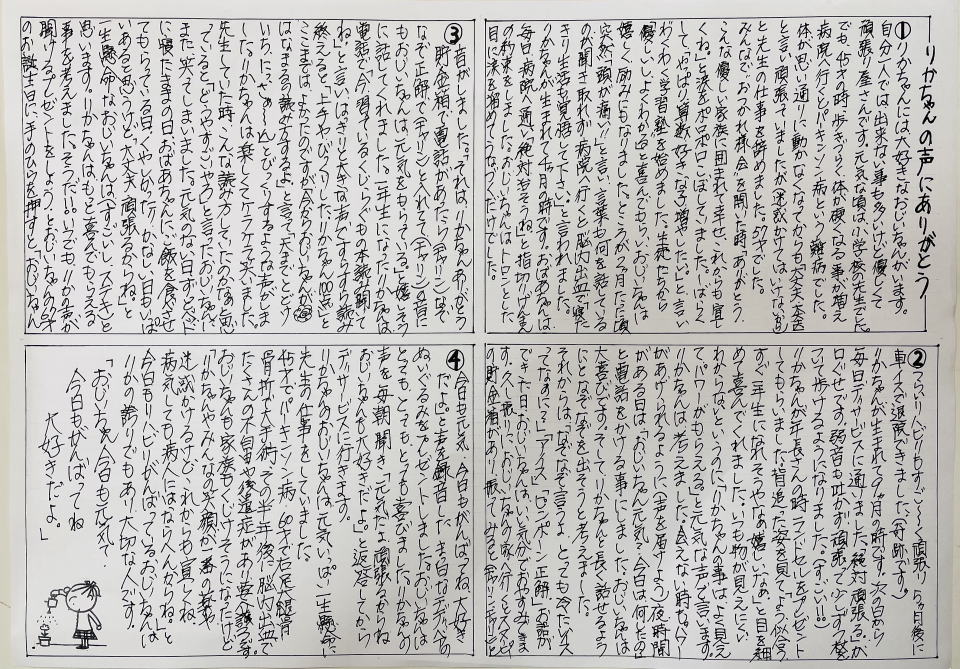 ーりかちゃんの声にありがとうー
①りかちゃんには大好きなおじいちゃんがいます。
自分一人では出来ない事も多いけど優しくて
頑張り屋さんです。元気な頃は小学校の先生でした。
でも45才の時、歩きづらく体が硬くなる事が増え
病院へ行くとパーキンソン病という難病でした。
体が思い通りに動かなくなってからも「大丈夫、大丈夫」
と言い頑張っていましたが迷惑かけてはいけない
と先生の仕事を辞めました。57才でした。
みんなで“おつかれ様会”を開いた時「ありがとう
こんな優しい家族に囲まれて幸せ、これからも宜し
くね。」と涙をポロポロこぼしていました。しばらく
して「やっぱり算数好きな子増やしたい」と言い
わくわく学習塾を始めました。生徒たちから
「優しいしよくわかる」と喜んでもらいおじいちゃんは
嬉しく励みにもなりました。ところが2ヶ月たった頃
突然「頭が痛い」と言い、言葉も何を話している
のか聞き取れず病院へ行くと脳内出血で寝た
きり生活も覚悟して下さい。と言われました。
りかちゃんが生まれて4ヶ月の時です。おばあちゃんは
毎日病院へ通い「絶対治そうね」と指切りげんまん
の約束をしました。おじいちゃんはトロンとした
目に涙を溜めてうなづくだけでした。
②つらいリハビリもすご〜く頑張り5ヶ月後に
車イスで退院できました。(奇跡です。)
りかちゃんが生まれて9ヶ月の時です。次の日から
毎日デイサービスに通いました。「絶対頑張る」が
口ぐせです。弱音も吐かず頑張って少しずつ杖
ついて歩けるようになりました。(すごい!!)
りかちゃんが年長さんの時ランドセルをプレゼント
してもらいました。背追った姿を見て「よう似合う
すぐ一年生になれそうやなあ嬉しいなぁ」と目を細
めて喜んでくれました。いつも物が見えにくい
わからないというのにりかちゃんの事はよう見え
てパワーがもらえる」と元気な声で言います。
りかちゃんは考えました。会えない時もパワー
があげられるように〈声を届けよう〉夜、時間
がある日は「おじいちゃん元気？今日は何たべたの」
と電話をかける事にしました。おじいちゃんは
大喜びです。そしてりかちゃんともっと長く話せるよう
に「となぞなぞを出そうと考えました。
それからは「なぞなぞ言うよ、とっても冷たいイス
ってなあに？」「アイス」「ピンポーン正解」会話が
できた日は「おじいちゃんはいい気分でおやすみま
す。久し振りにおじいちゃんの家へ行くとテレビ
の前に貯金箱がありふってみるとチャリンチャリンと
③音がしました。「それはりかちゃんありがとう
貯金箱で、電話があったらチャリン、なぞ
なぞ正解でチャリンと入れてチャリンの音に
もおじいちゃんは元気をもらっている。」と嬉しそう
に話してくれました。一年生になったりかちゃんは
電話で「今習っているくじらぐもの本読み聞いて
ね」と言い、はきはりときれいな声ですらすら読み
終えると「上手やびっくりした。りかちゃん100点」と
ここまではよかったのですが、今からおじいちゃんが
はなまるの読み方をするよ」と言って、天までとどけ
いち、にっ、さぁ〜んとびっくりするような声がしま
した。りかちゃんは楽しくてケラケラ笑いました。
先生していた時、こんな読み方していたのかなあと思
っていると、どうや、すごいやろ」と言ったおじいちゃんに
また笑ってしまいました。元気のない日ずっとベッド
に寝たきりの日、おばあちゃんに、ご飯を食べさせ
てもらっている日。くやしいのかつかない日もいっぱ
いあると思うけど「大丈夫頑張るからね」と
一生懸命なおじいちゃんは〈すごいし、ステキ〉と
思います。りかちゃんはもっと喜んでもらえる
事を考えました。そうだ!!いつでもりかの声が
聞けるプレゼントをしよう。とおじいちゃん
のお誕生日に、手のひらを押すと、おじいちゃん
④今日も元気？今日もがんばってね、大好き
だよ。」と声を録音した、まっ白なテディベアの
ぬいぐるみをプレゼントしました。おじいちゃんは
とってもとってもとっても喜びました。りかちゃんの
声を毎朝聞き「元気だよ、頑張るからね
おじいちゃんも大好きだよ。」と返答してから
デイサービスに行きます。
りかちゃんのおじいちゃんは元気いっぱい一生懸命に
先生の仕事をしていました。
45才でパーキンソン病、60才で右足大腿骨
骨折の大手術、その半年後に脳内出血で
たくさんの不自由や後遺症がありますが
おじいちゃんも家族もくじけそうになったけど
「りかちゃんやみんなの笑顔が一番の薬や
迷惑かけるけどこれからも宜しくね。
病気しても病人にはならんからね。」と
今日もリハビリがんばっているおじいちゃんは
りかの誇りでもあり、大切な人です。
「おじいちゃん今日も元気で
今日もがんばってね
大好きだよ。」